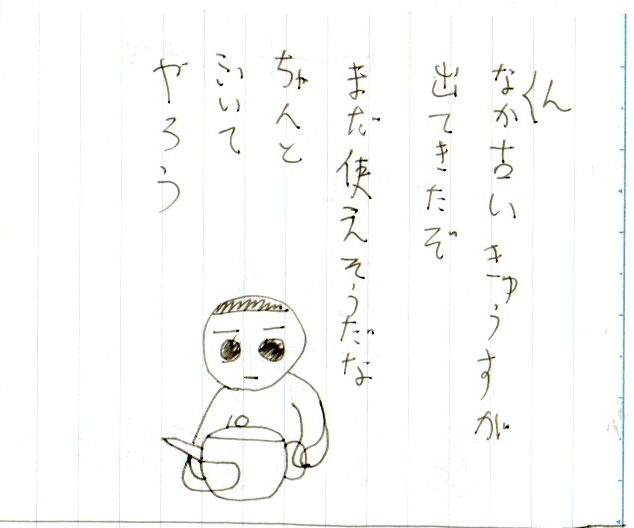 なんか古いきゅうすが
出てきたぞ
まだ使えそうだな
ちゃんと
ふいて
やろう